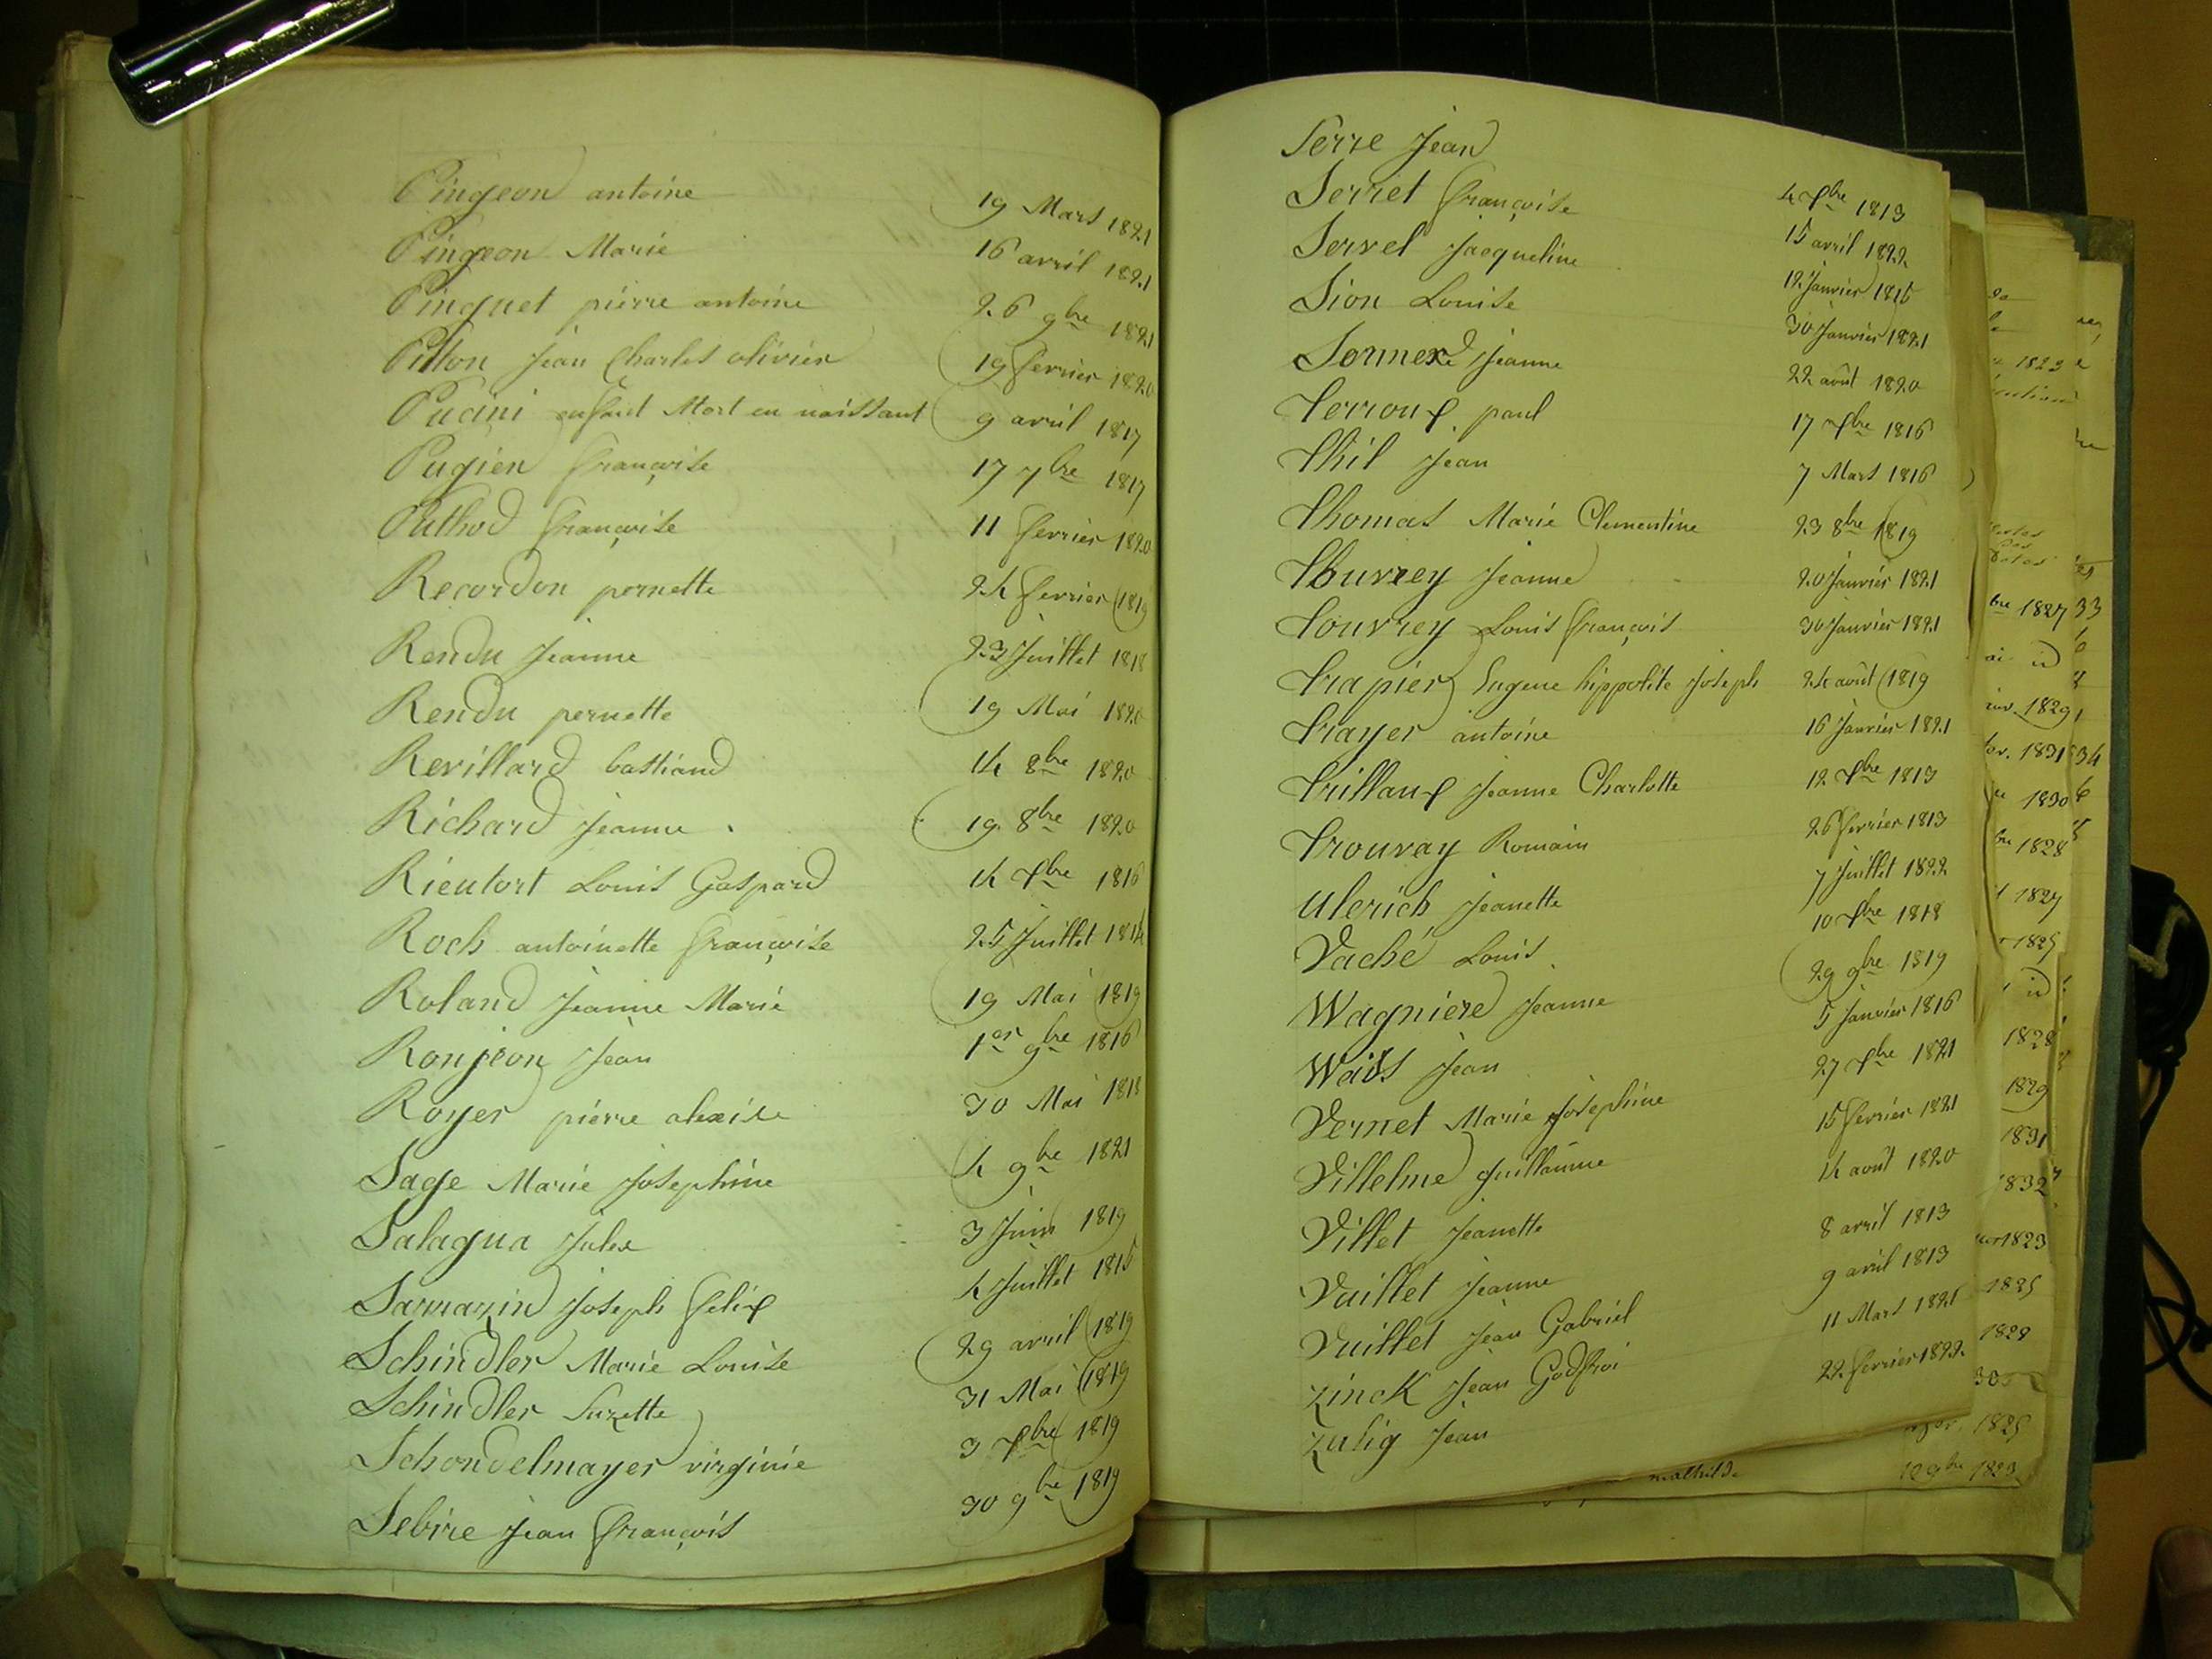 Pingeon antoine 19 Mars 1821
Pingeon Marie 16 avril 1821
Pinguet pierre antoine 26 9bre 1821
Pitton Jean Charles olivier 19 fevrier 1820
Pucini enfant Mort en naissant 9 avril 1817
Pugien françoise 17 7bre 1817
Puthod françoise 11 fevrier 1820
Recordon pernette 24 fevrier 1819
Rendu Jeanne 23 Juillet 1818
Rendu pernette 19 Mai 1820
Revillard bastiand 14 8bre 1820
Richard Jeanne 19 8bre 1820
Rieutort Louis Gaspard 14 Xbre 1816
Roch antoinette françoise 25 Juillet 1814
Roland Jeanne Marie 19 Mai 1819
Ronjeon Jean 1er 9bre 1816
Royer pierre alexise 30 Mai 1818
Sage Marie Josephine 4 9bre 1821
Salagua Jules 3 Juin 1819
Samazin Joseph felix 4 Juillet 1815
Schindler Marie Louise 29 avril 1819
Schindler Suzette 31 Mai 1819
Schondelmayer virginie 3 Xbre 1819
Sebire Jean françois 30 9bre 1819
Serre Jean 4 Xbre 1813
Serret françoise 15 avril 1822
Servel Jacqueline 12 Janvier 1815
Sion Louise 30 Janvier 1821
Jeanne 22 août 1820
Terroux paul 17 Xbre 1816
Thil Jean 7 Mars 1816
Thomas Marie Clementine 23 8bre 1819
Jeanne 20 Janvier 1821
Touvrey Louis françois 30 Janvier 1821
Trapier Eugene hippolite Joseph 24 août 1819
Trayer antoine 16 Janvier 1821
Trillaux Jeanne Charlotte 12 Xbre 1813
Trouvay Romain 26 fevrier 1813
Ulerich Jeanette 7 Juillet 1822
Vaché Louis 10 Xbre 1818
Wagniere Jeanne 29 9bre 1819
Waiss Jean 5 Janvier 1816
Vernet Marie Josephine 27 Xbre 1821
Villelme guillaume 15 fevrier 1821
Villet Jeanette 14 août 1820
Vuillet Jeanne 8 avril 1813
Vuillet Jean Gabriel 9 avril 1813
Zinck Jean Godfroi 11 Mars 1821
Zulig Jean 22 fevrier 1822
mathilde